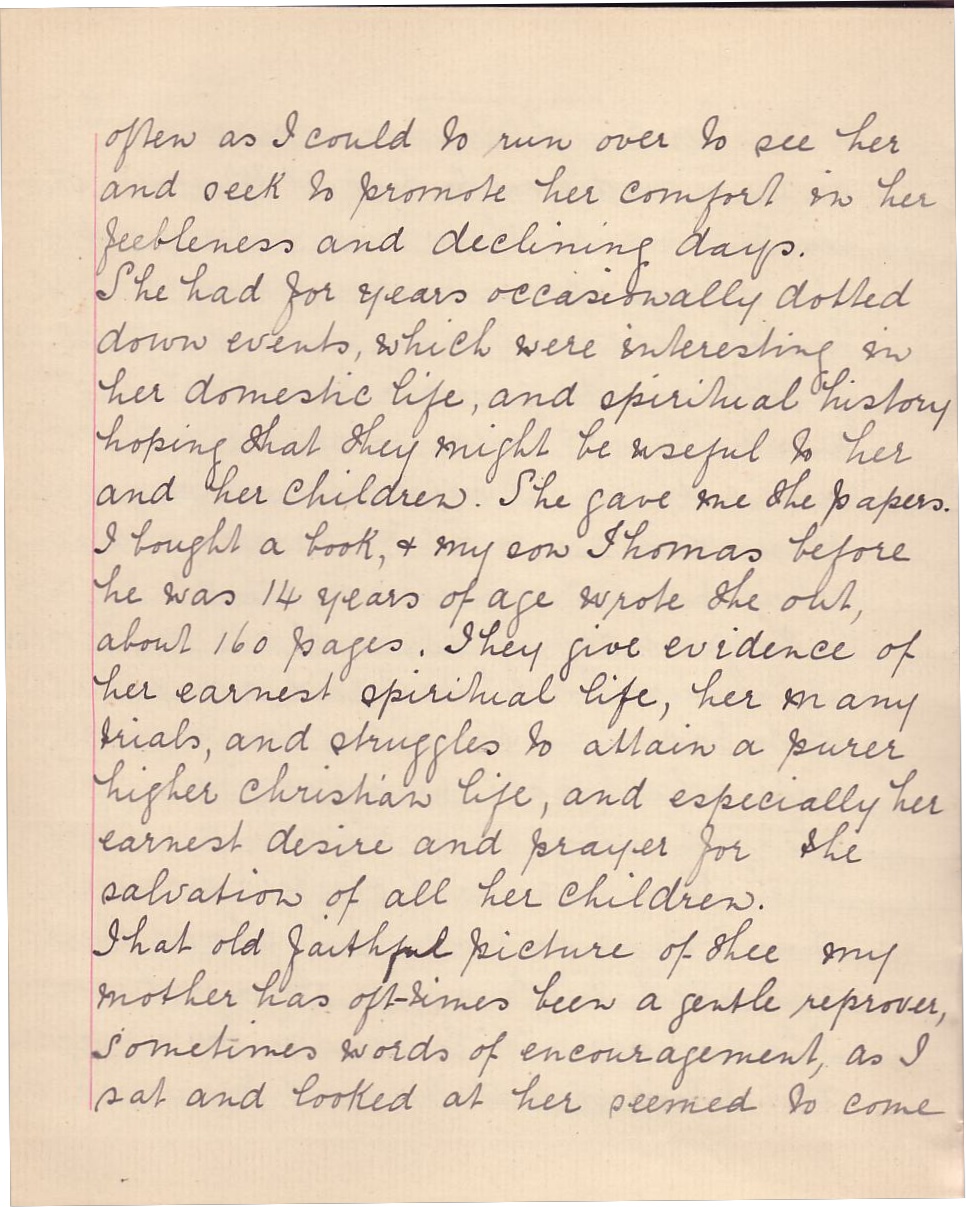 often as I could to run over to see her
and seek to promote her comfort in her
feebleness and declining days.
She had for years occasionally dotted
down events, which were interesting in
her domestic life, and spiritual history
hoping that they might be useful to her
and her children. She gave me the papers.
I bought a book, & my son Thomas before
he was 14 years of age wrote the out,
about 160 pages. They give evidence of
her earnest spiritual life, her many
trials, and struggles to attain a purer
higher christian life, and especially her
earnest desire and prayer for the
salvation of all her children.
That old faithful picture of thee my
mother has oft-times been a gentle reprover,
sometimes words of encouragement, as I
sat and looked at her seemed to come